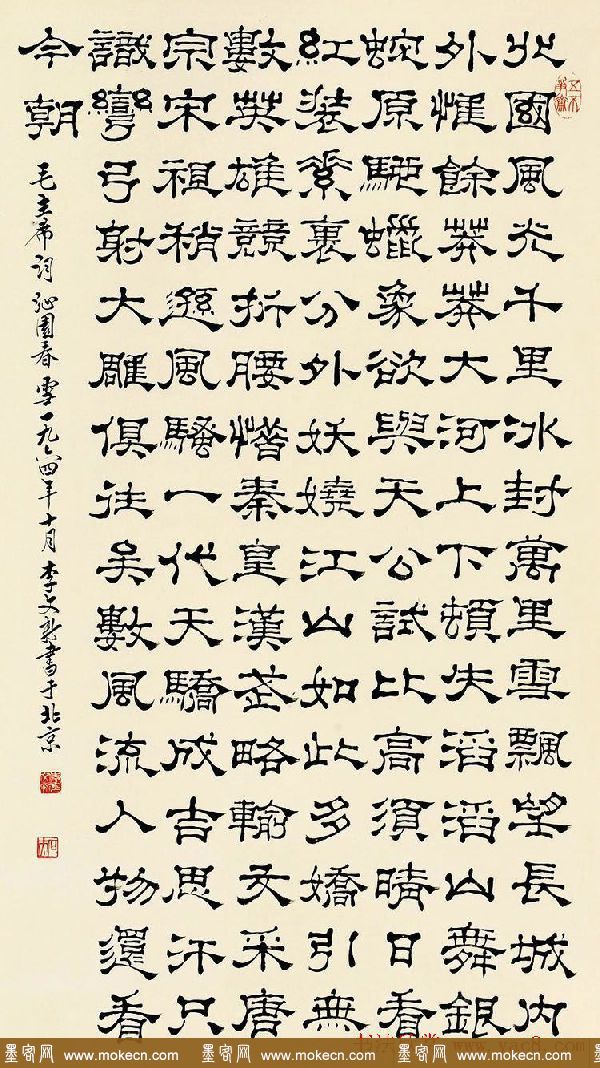 北國風光千里冰封萬里雪飄望長城內
外惟餘莽莽大河上下頓失滔滔山舞銀
蛇原馳蠟象欲與天公試比高須晴日看
紅裝素裹分外妖嬈江山如此多嬌引無
數英雄競折腰惜秦皇漢武略輸文采唐
宗宋祖稍遜風騷一代天驕成吉思汗只
識彎弓射大雕俱往矣數風流人物還看
今朝
毛主席詞沁園春雪一九六四年十月李文新書于北京
墨客网 www.mokecn.com 墨客网 www.mokecn.com 墨客网 www.mokecn.com